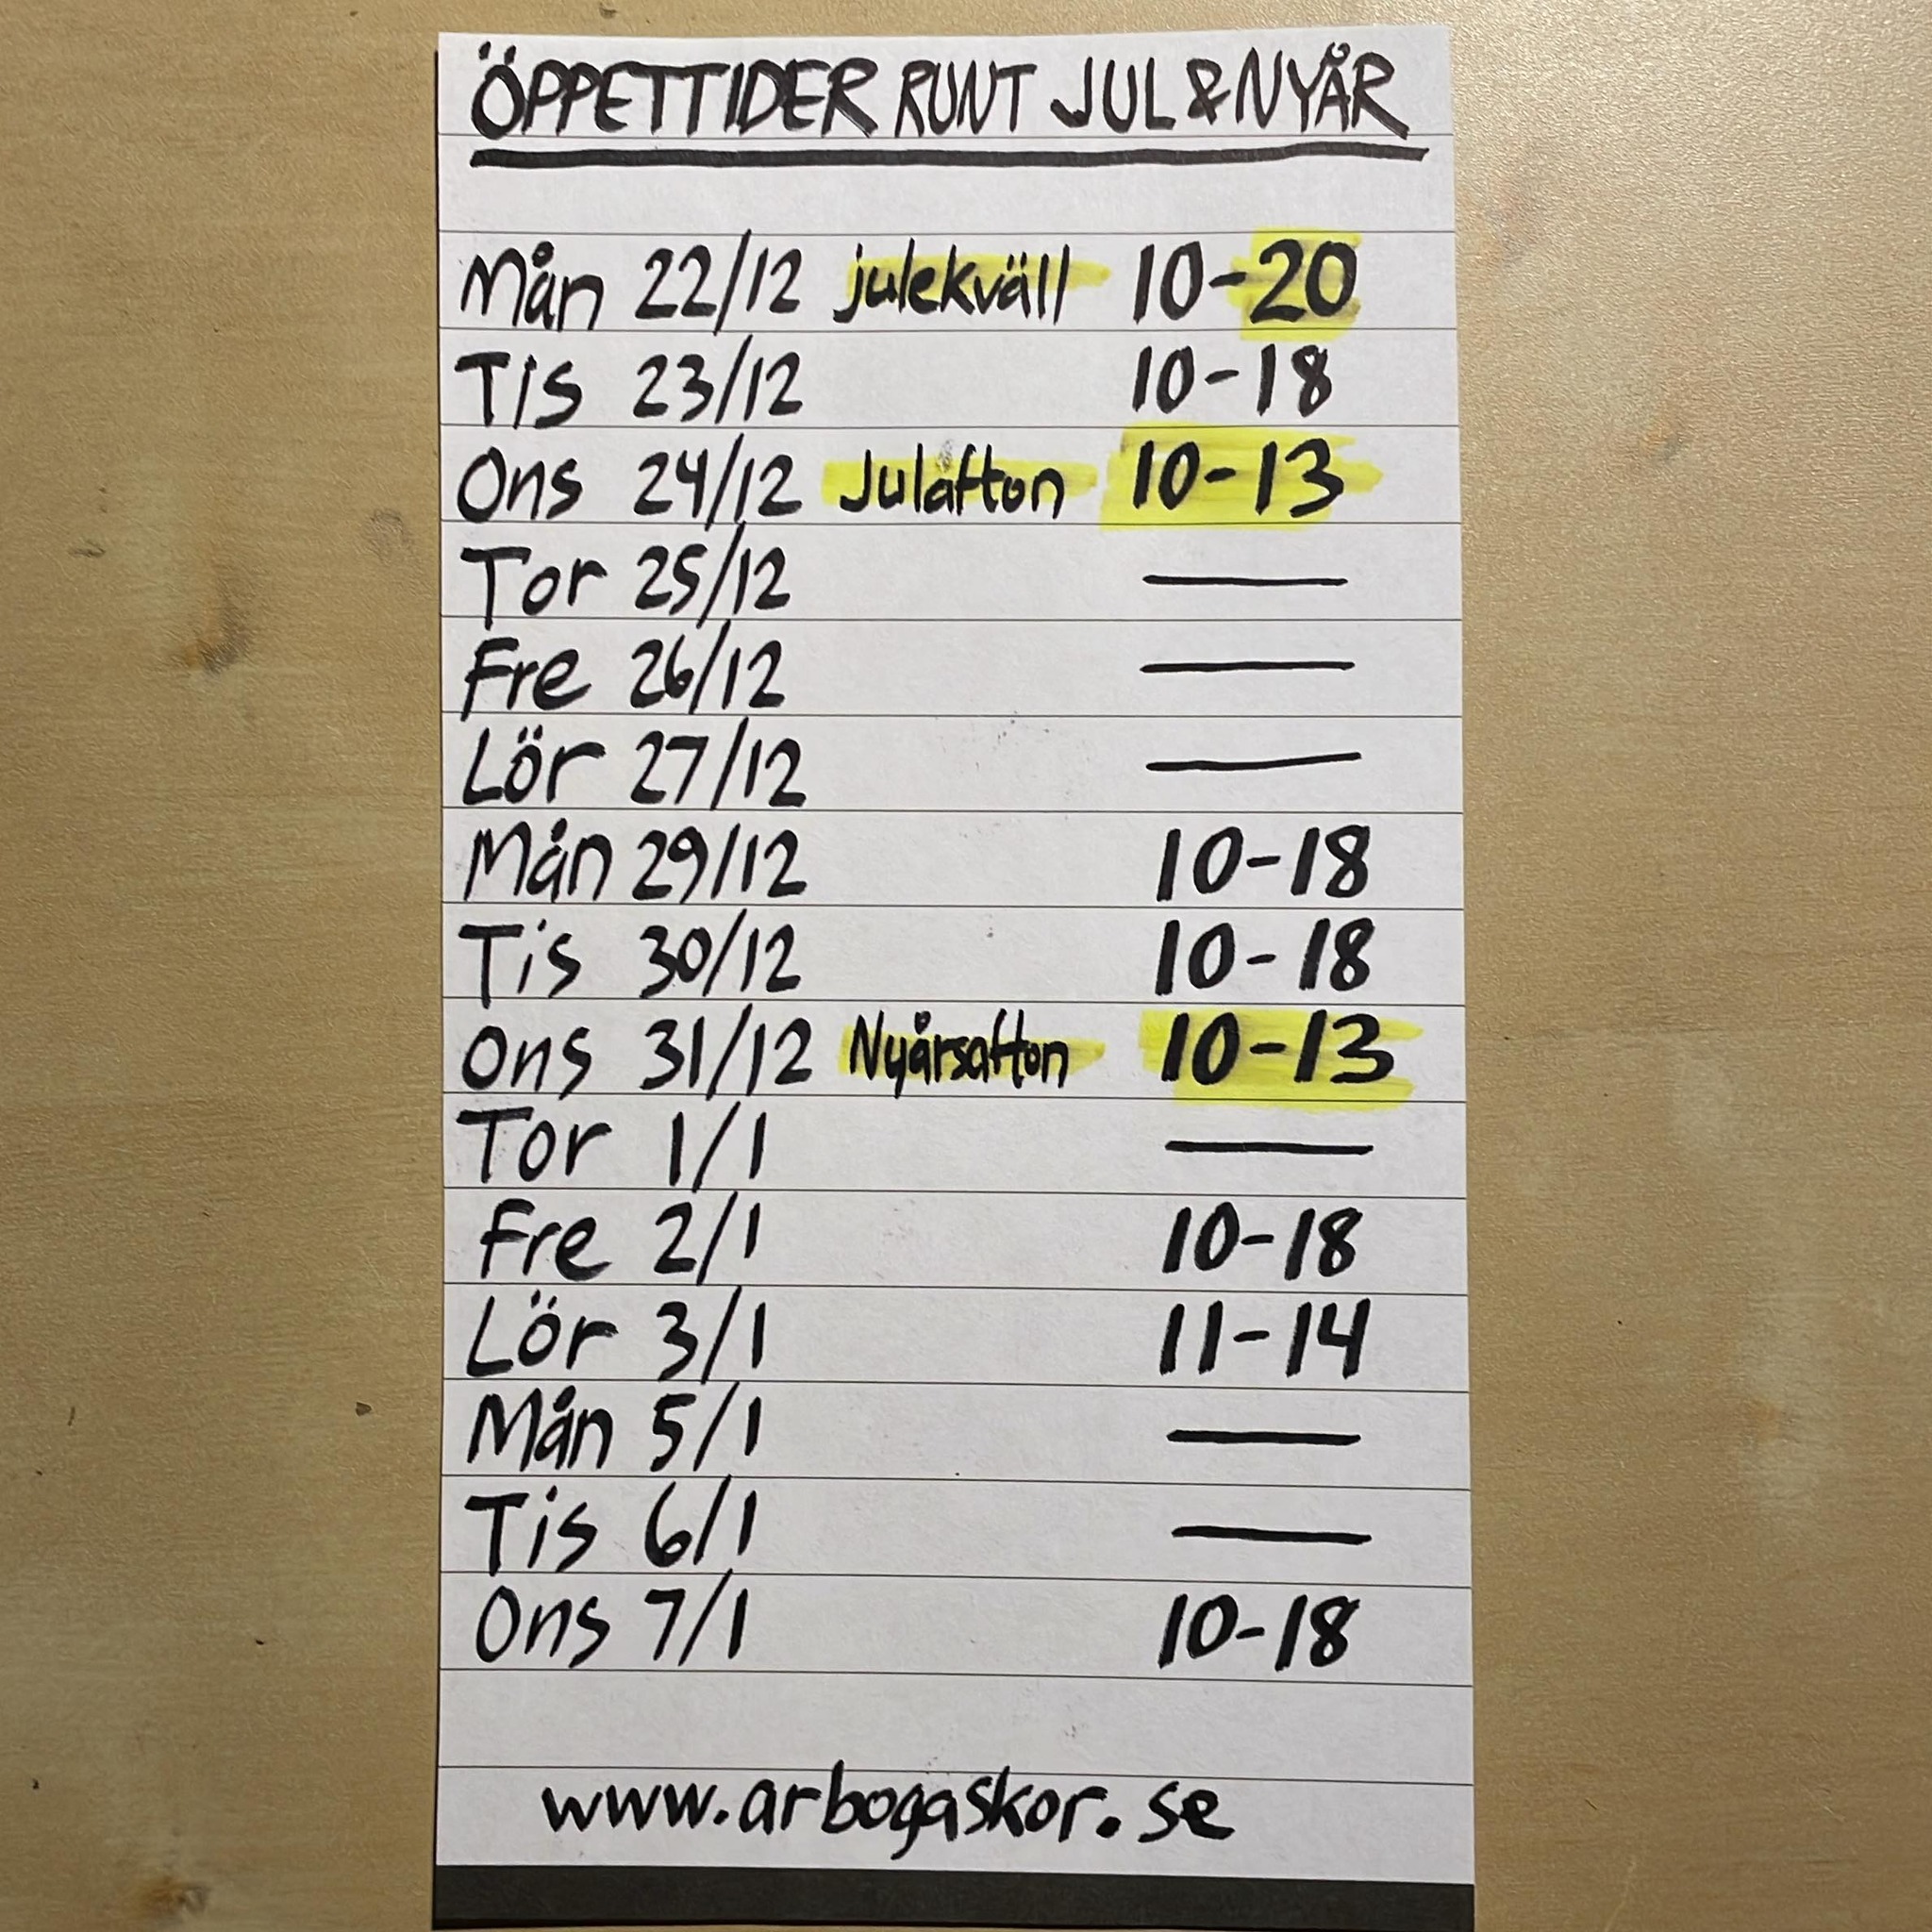 ÖPPETTIDER RUNT JUL & NYÅR
Mån 22/12 julekväll 10-20
Tis 23/12 10-18
Ons 24/12 Julafton 10-13
Tor 25/12 —
Fre 26/12 —
Lör 27/12 —
Mån 29/12 10-18
Tis 30/12 10-18
Ons 31/12 Nyårsafton 10-13
Tor 1/1 —
Fre 2/1 10-18
Lör 3/1 11-14
Mån 5/1 —
Tis 6/1 —
Ons 7/1 10-18
www.arbogaskor.se